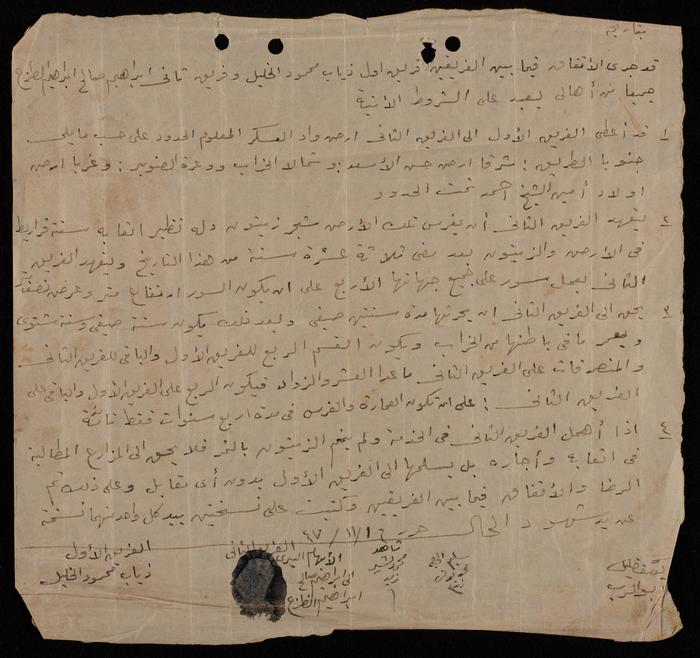 بتاريخه
قد جرى الاتفاق فيما بين الفريقين فريق اول ذياب محمود الخليل وفريق ثاني ابراهيم صالح ابراهيم
جميعا من أهالي يعبد على الشروط الآتية
١ قد أعطى الفريق الأول الى الفريق الثاني ارض واد العسكر المعلوم الحدود على حسب ما يلي
جنوبا الطريق : شرقا ارض حسن الأسعد وشمالا الخراب ووعرة الصنوبر : وغربا ارض
اولاد أمين الشيخ احمد تمت الحدود
٢ يتعهد الفريق الثاني أن يغرس تلك الأرض شجر زيتون وله نظير اتعابه ستة قراريط
في الأرض والزيتون بعد مضي ثلاثة عشرة سنة من هذا التاريخ ويتعهد الفريق
الثاني بعمل سور على جميع جهاتها الأربع على ان يكون السور ارتفاع متر وعرض
٣ يحق الى الفريق الثاني ان يحرثها مدة سنتين صيفي وبعد ذلك يكون سنة صيفي وسنة شتوي
ويعمر ما في باطنها من الخراب ويكون القسم الربع للفريق الأول والباقي للفريق الثاني
والمتصرفات على الفريق الثاني ما عدا العشر والزواد فيكون الربع على الفريق الأول والباقي على
الفريق الثاني : على ان تكون العمارة والغرس في مدة اربع سنوات فقط
٤ اذا أهمل الفريق الثاني في الخدمة ولم ينجح الزيتون بالنمو فلا يحق الى المزارع المطالبة
في اتعابه وأجاره بل يسلمها الى الفريق الأول بدون أي مقابل وعلى ذلك تم
الرضا والاتفاق فيما بين الفريقين وكتبت على نسختين بيد كل واحد منهما نسخة
عن يد شهود الحال حرر ٤٧/١١/١٦
الفريق الأول
ذياب محمود الخليل
الفريق الثاني
ابراهيم صالح
ابراهيم
شاهد
محمد
زيد